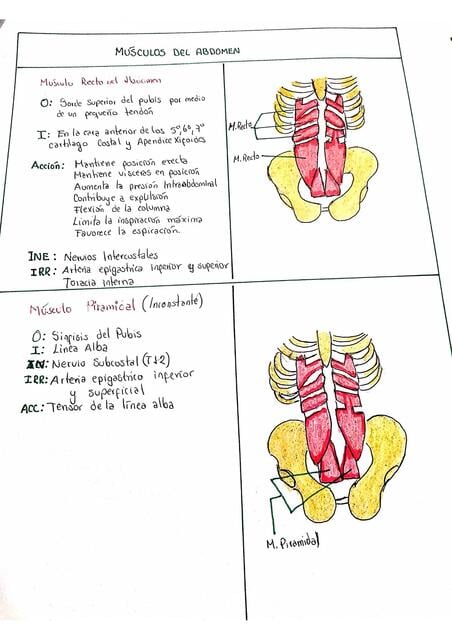 MÚSCULOS DEL ABDOMEN
Músculo Recto del Abdomen
O: Borde Superior del pubis por medio
de un pequeño tendón
I: En la cara anterior de los 5º,6º,7º
cartílago Costal y Apendice Xifoides
Acción: Mantiene posición erecta
Mantiene visceras en posición
Aumenta la presion Intraabdominal
Contribuye a expulsión
Flexion de la columna
Limita la inspiración máxima
Favorece la espiración.
INE: Nervios Intercostales
IRR: Arteria epigastrica inferior y superior
Toracia interna
M. Recto
M. Recto
Músculo Piramidal (Inconstante)
O: Sinfisis del Pubis
I: Linea Alba
IN: Nervio Subcostal (T12)
IRR: Arteria epigastrico inferior
y superficial
ACC: Tensor de la línea alba
M. Piramidal